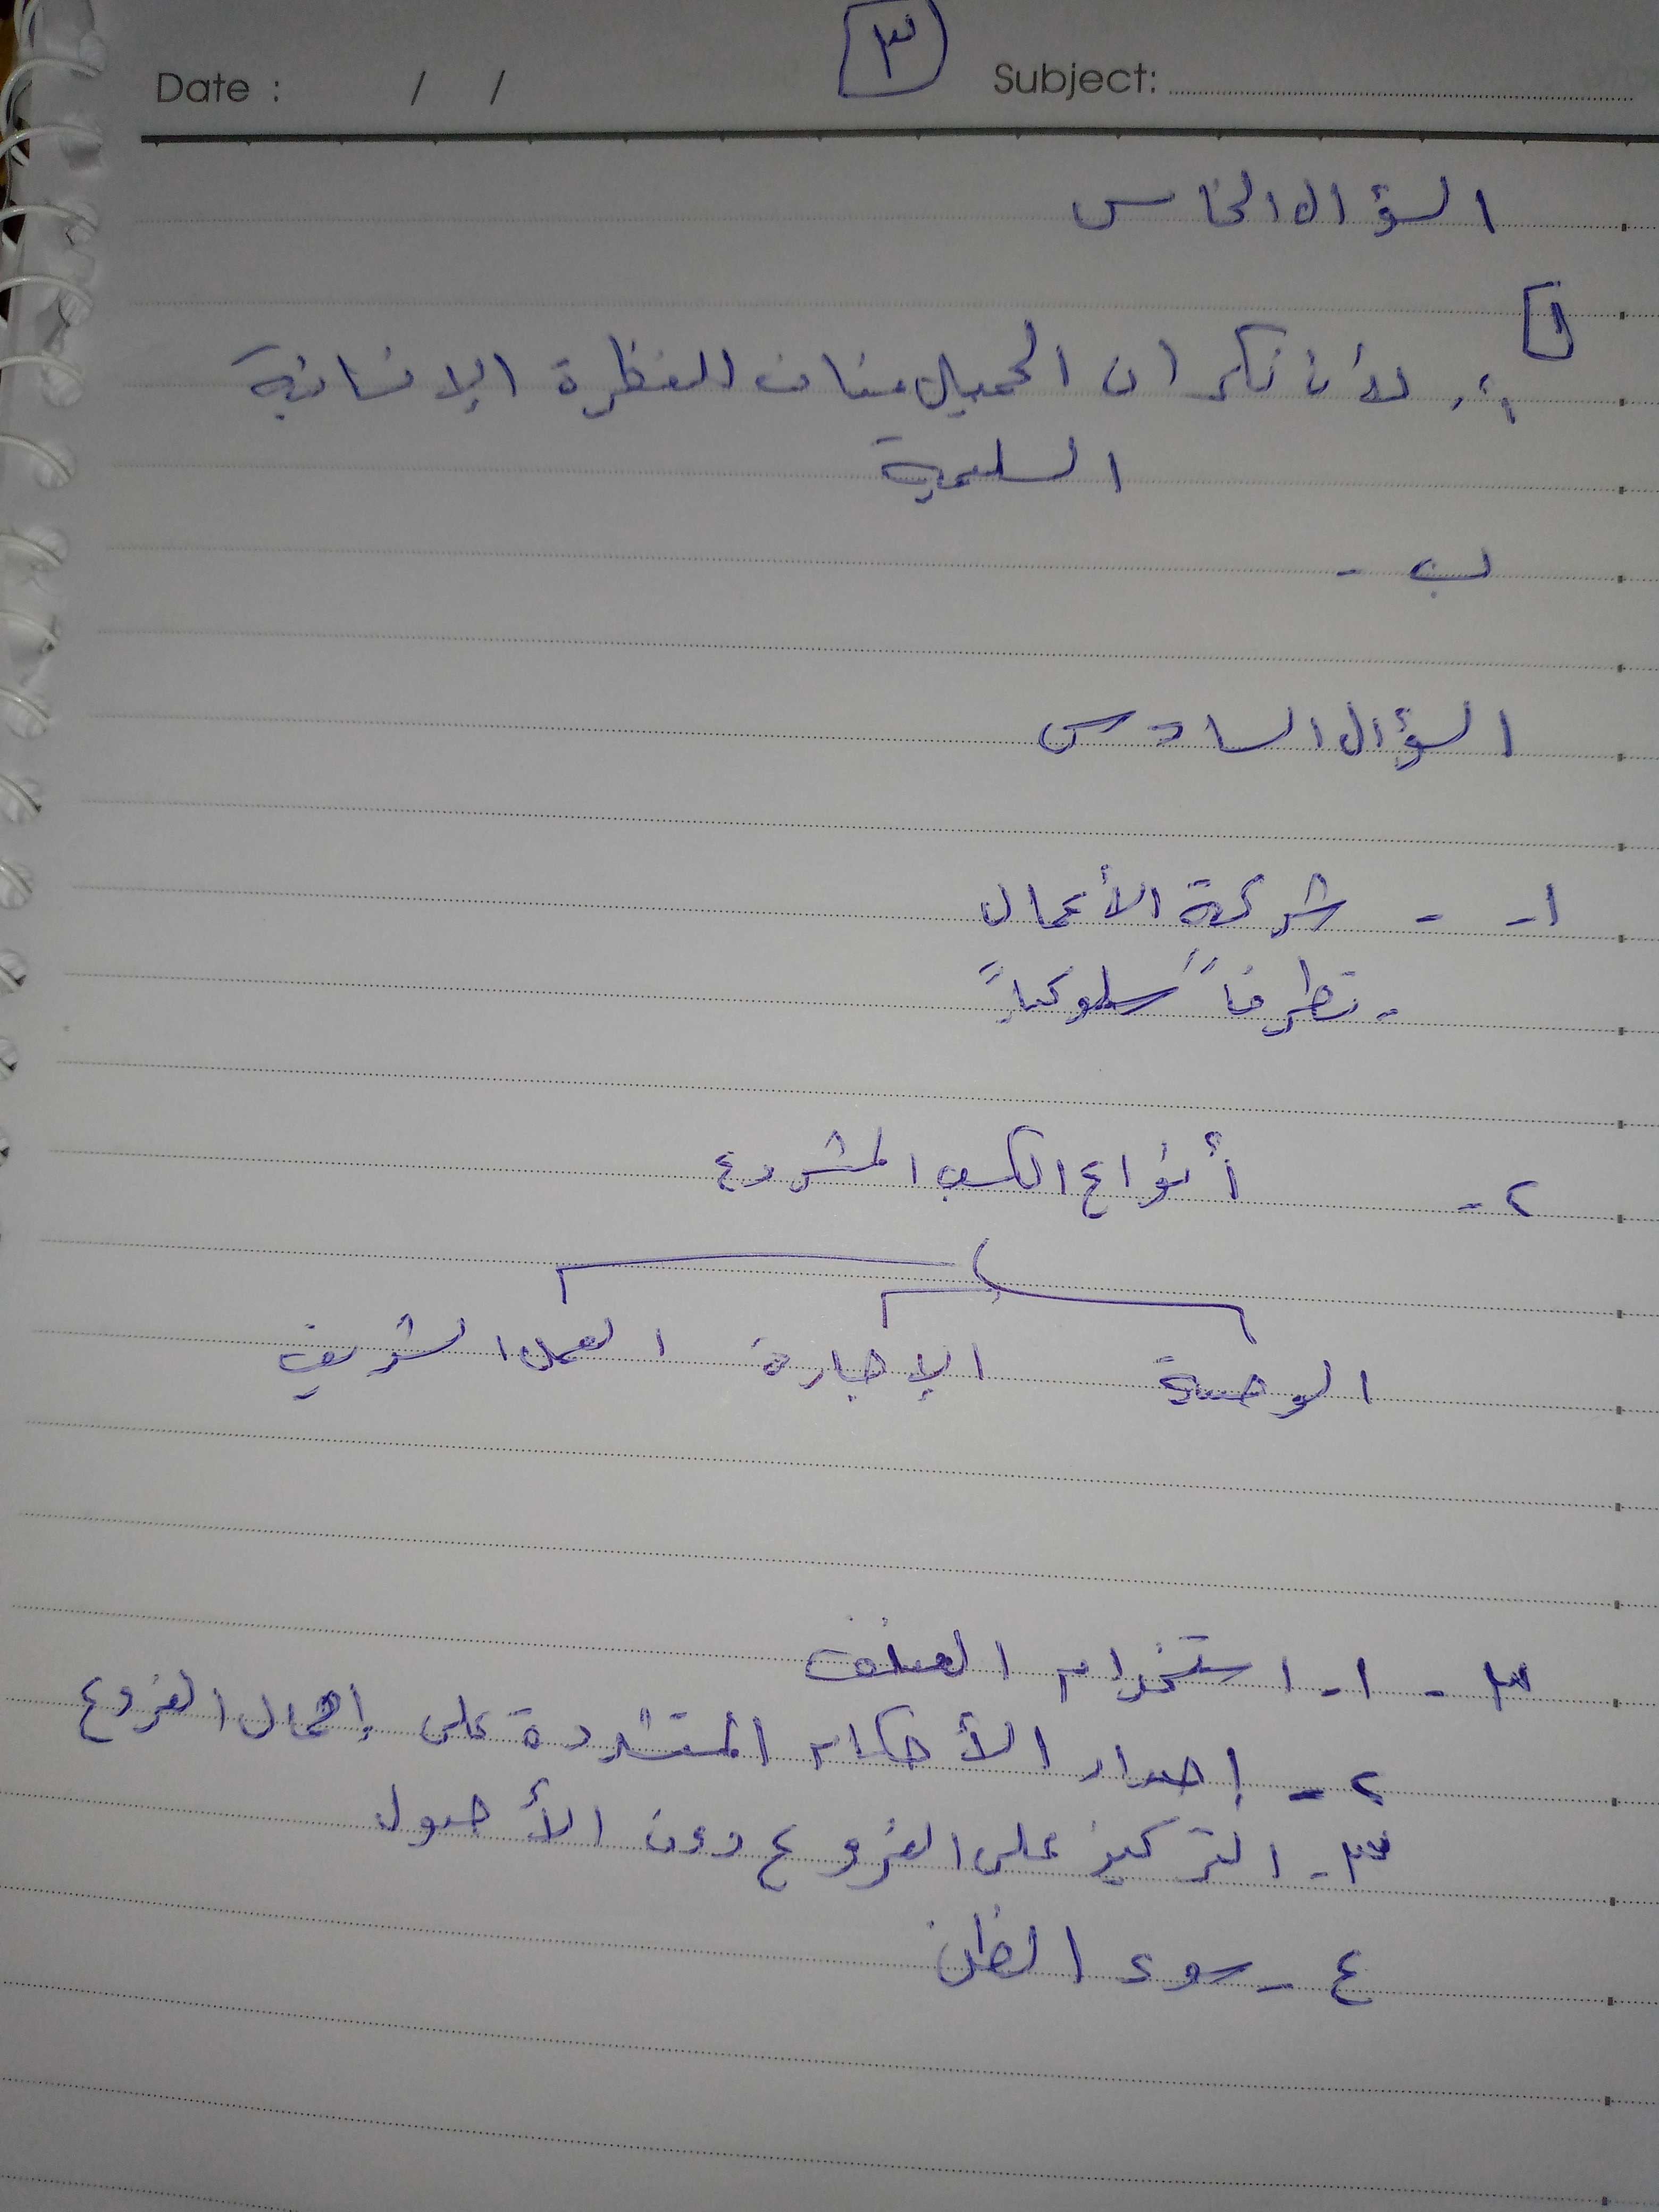 ٣
Date : / / Subject:
السؤال الخامس
١
أ. لأن نكران الجميل مناف للفطرة الإنسانية
السليمة
ب -
السؤال السادس
١- - شركة الأعمال
- تطرفاً سلوكياً
٢- أنواع الكسب المشروع
الوصية الإجارة العمل الشريف
٣ - ١- استخدام العنف
٢ - إصدار الأحكام المتشددة على إهمال الفروع
٣- التركيز على الفروع دون الأصول
٤ - سوء الظن